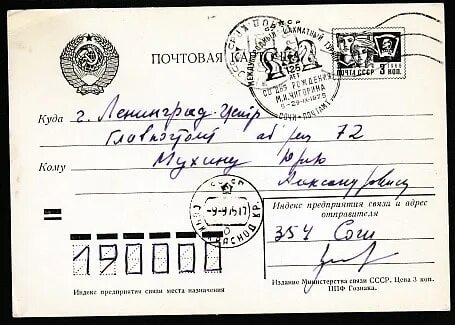 ПОЧТОВАЯ КАРТОЧКА
МЕЖДУНАРОДНЫЙ ШАХМАТНЫЙ
125
ЛЕТ
СО ДНЯ РОЖДЕНИЯ
М.И.ЧИГОРИНА
СОЧИ-ПОЧТАМТ
ПОЧТА СССР 3 КОП.
Куда г. Ленинград-Центр
Главпочтамт 72
Кому Мухину Юрию
Александровичу
СССР
-9-9 75 17
СОЧИ КРАСНОД. КР.
Индекс предприятия связи и адрес
отправителя
354 Сочи
190000
Индекс предприятия связи места назначения
Издание Министерства связи СССР. Цена 3 коп.
ППФ Гознака.